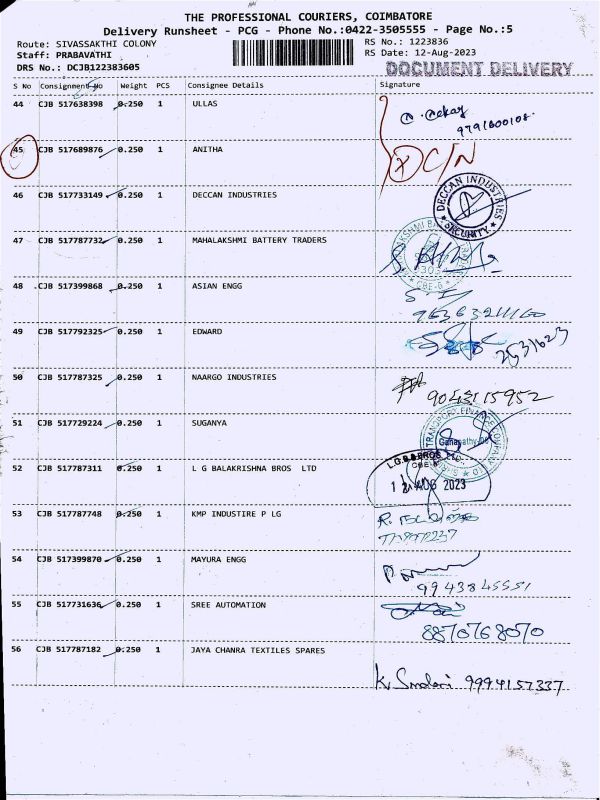 THE PROFESSIONAL COURIERS, COIMBATORE
Delivery Runsheet - PCG - Phone No.:0422-3505555 - Page No.:5
Route: SIVASSAKTHI COLONY
Staff: PRABAVATHI
DRS No.: DCJB122383605
RS No.: 1223836
RS Date: 12-Aug-2023
DOCUMENT DELIVERY
S No Consignment No Weight PCS Consignee Details Signature
44 CJB 517638398 0.250 1 ULLAS
9791600108
45 CJB 517689876 0.250 1 ANITHA
DC/N
46 CJB 517733149 0.250 1 DECCAN INDUSTRIES
DECCAN INDUSTRIES
SECURITY
47 CJB 517787732 0.250 1 MAHALAKSHMI BATTERY TRADERS
CBE-6
48 CJB 517399868 0.250 1 ASIAN ENGG
49 CJB 517792325 0.250 1 EDWARD
2531623
50 CJB 517787325 0.250 1 NAARGO INDUSTRIES
9043115952
51 CJB 517729224 0.250 1 SUGANYA
TRANSPORT FINANCE COMPANY
Ganapathy
52 CJB 517787311 0.250 1 L G BALAKRISHNA BROS LTD
L.G.B & BROS LTD.
CBE-6
12 AUG 2023
53 CJB 517787748 0.250 1 KMP INDUSTIRE P LG
54 CJB 517399870 0.250 1 MAYURA ENGG
9943845551
55 CJB 517731636 0.250 1 SREE AUTOMATION
8870768070
56 CJB 517787182 0.250 1 JAYA CHANRA TEXTILES SPARES
9994157337